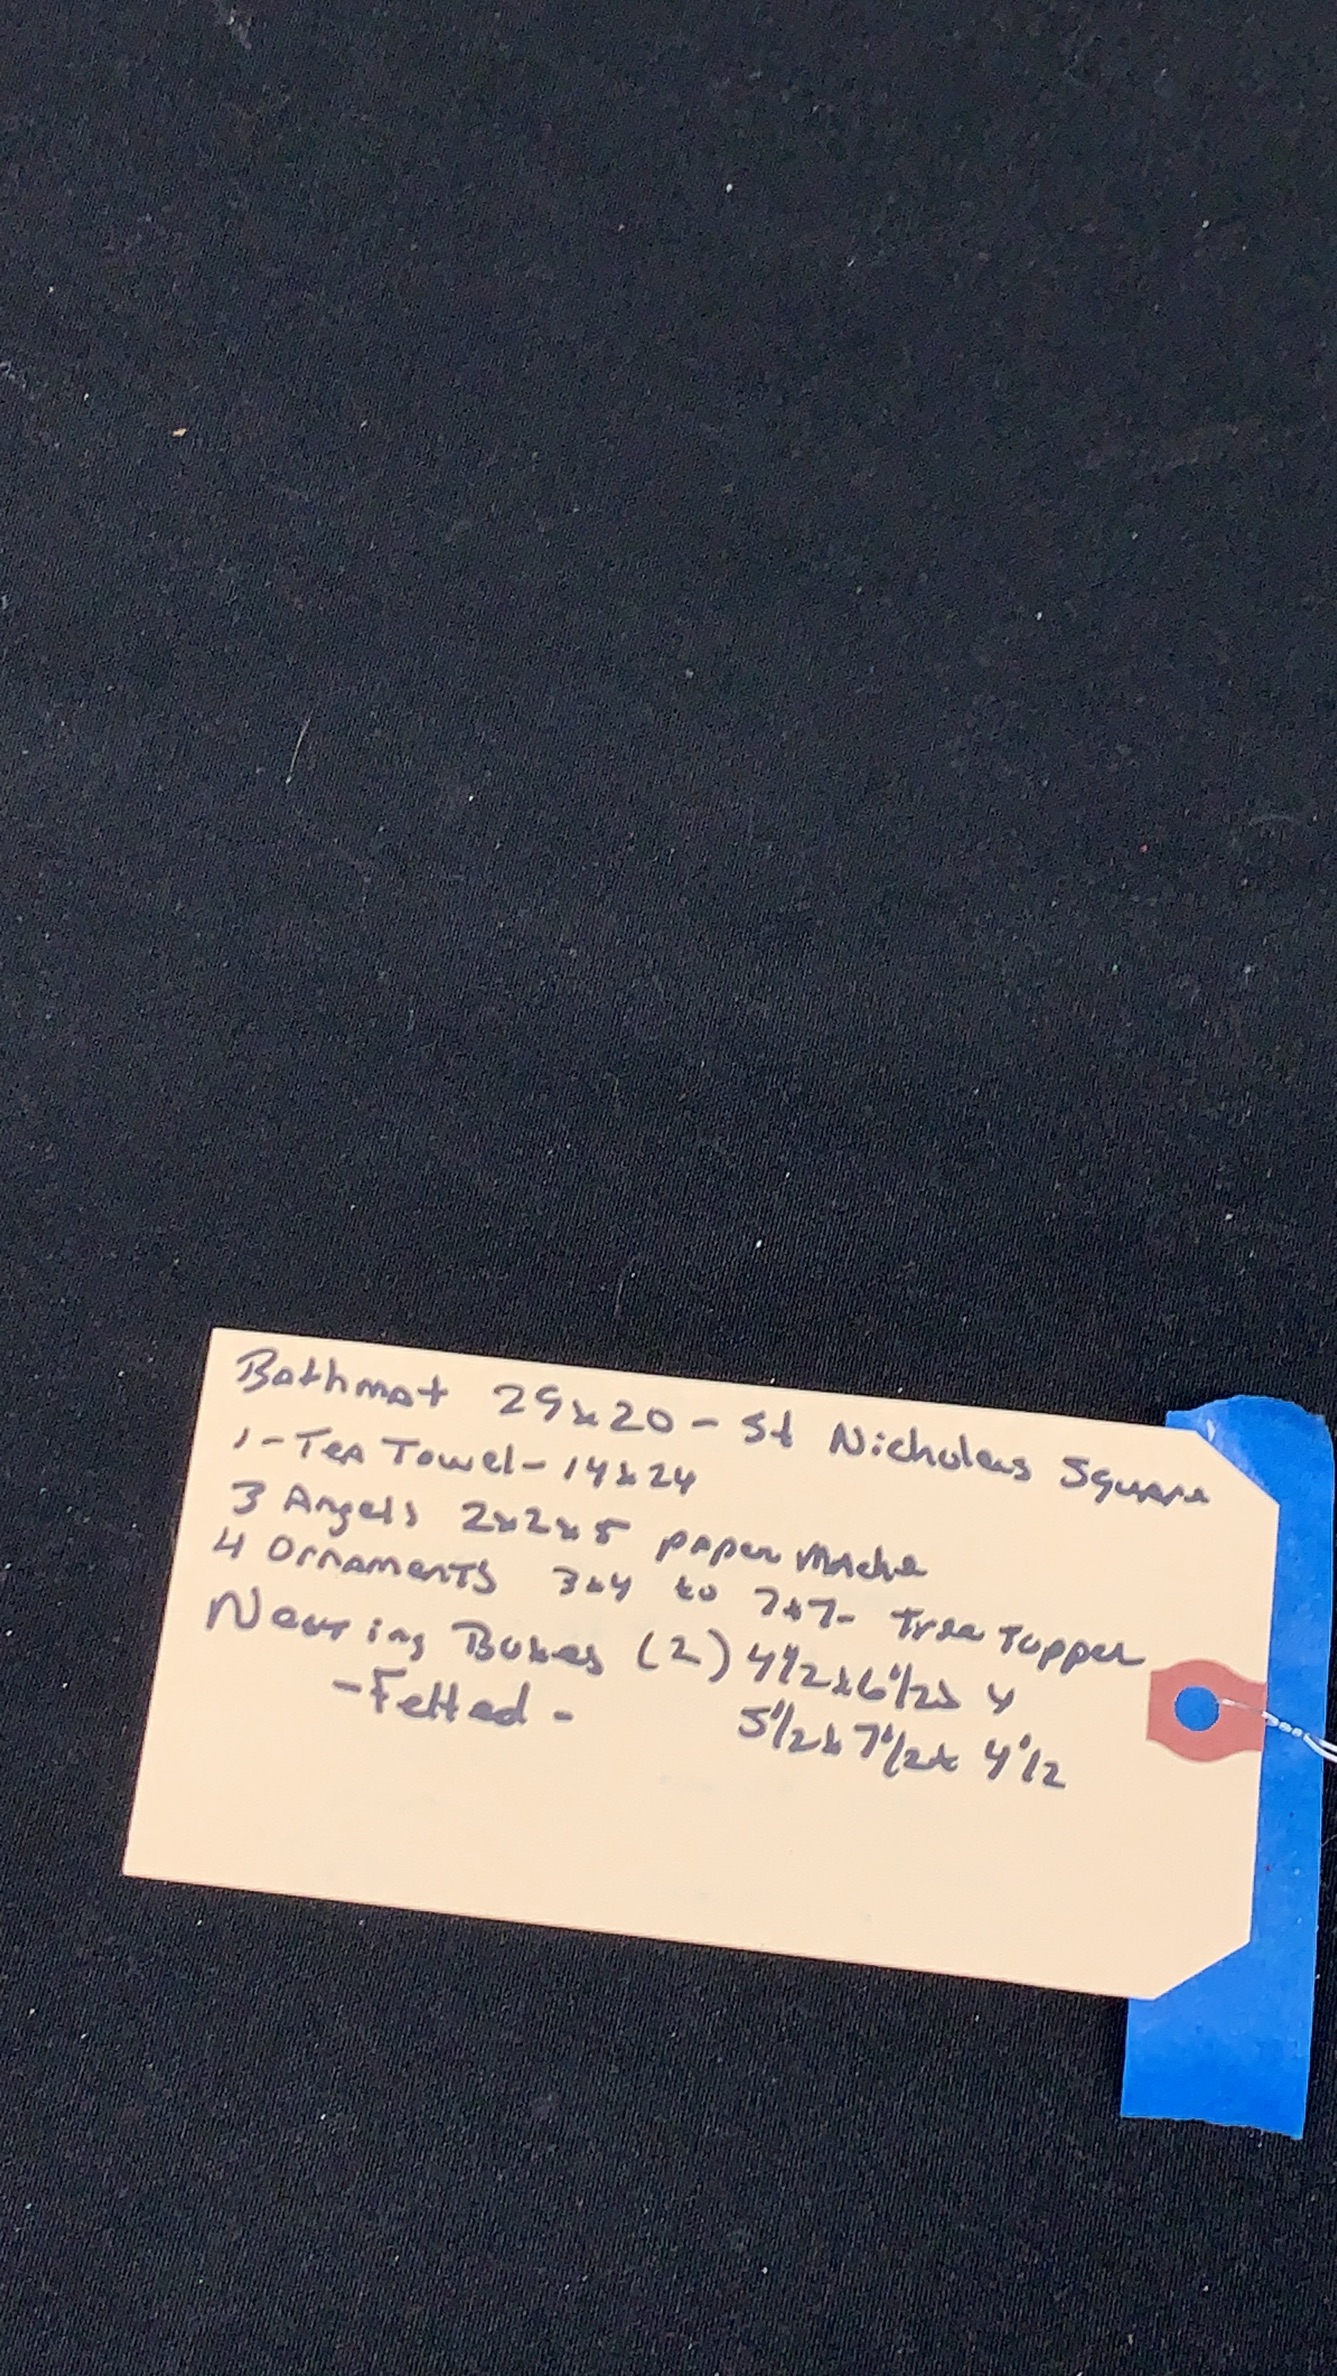 Bathmat 29x20 - St Nicholas Square
1 - Tea Towel - 14x24
3 Angels 2x2x5 paper mache
4 Ornaments 3x4 to 7x7 - Tree Topper
Nesting Boxes (2) 4 1/2 x 6 1/2 x 4
- Felted - 5 1/2 x 7 1/2 x 4 1/2